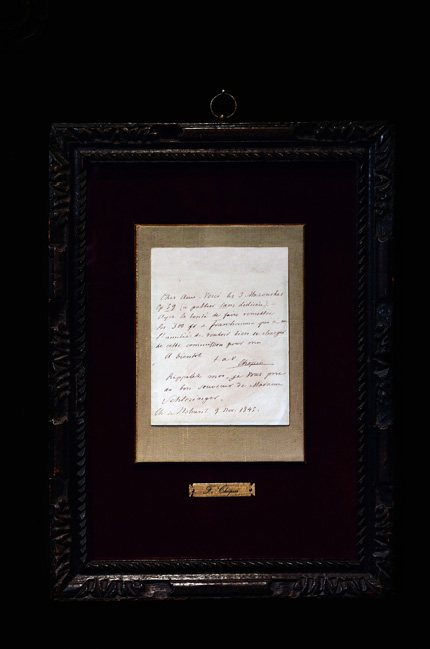 Cher ami. Voici les 3 Mazourkas
Op 59 (à publier sans dédicace).
Ayez la bonté de faire remettre
les 300 ft à Franchomme qui a eu
l'amitié de vouloir bien se charger
de cette commission pour moi
A bientôt t. à v.
Chopin
Rappelez moi, je vous prie
au bon souvenir de Madame
Schlesinger.
Ch. de Nohant 9 1845.
F. Chopin